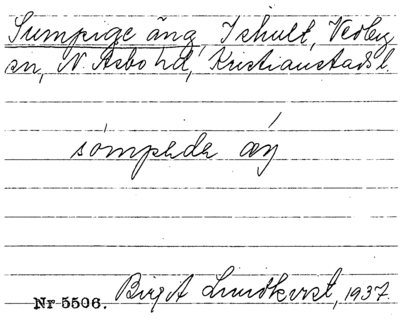 Sumpige äng, Ishult, Verby
sn, N. Åsbo hd, Kristianstads l.
sómpada æŋ
Nr 5506. Birgit Lundkvist, 1937.